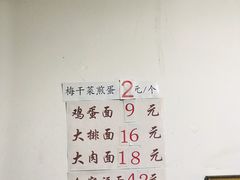 梅干菜煎蛋2元/个
鸡蛋面9元
大排面16元
大肉面18元